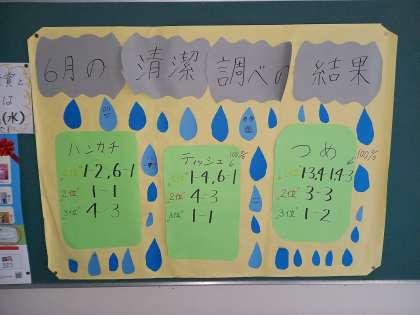 6月の 清潔 調べの 結果
ハンカチ
1位 1-2, 6-1
2位 1-1
3位 4-3
ティッシュ 100%
1位 1-4, 6-1
2位 4-3
3位 1-1
つめ 100%
1位 1-3, 4-1, 4-3
2位 3-3
3位 1-2
は
(水)